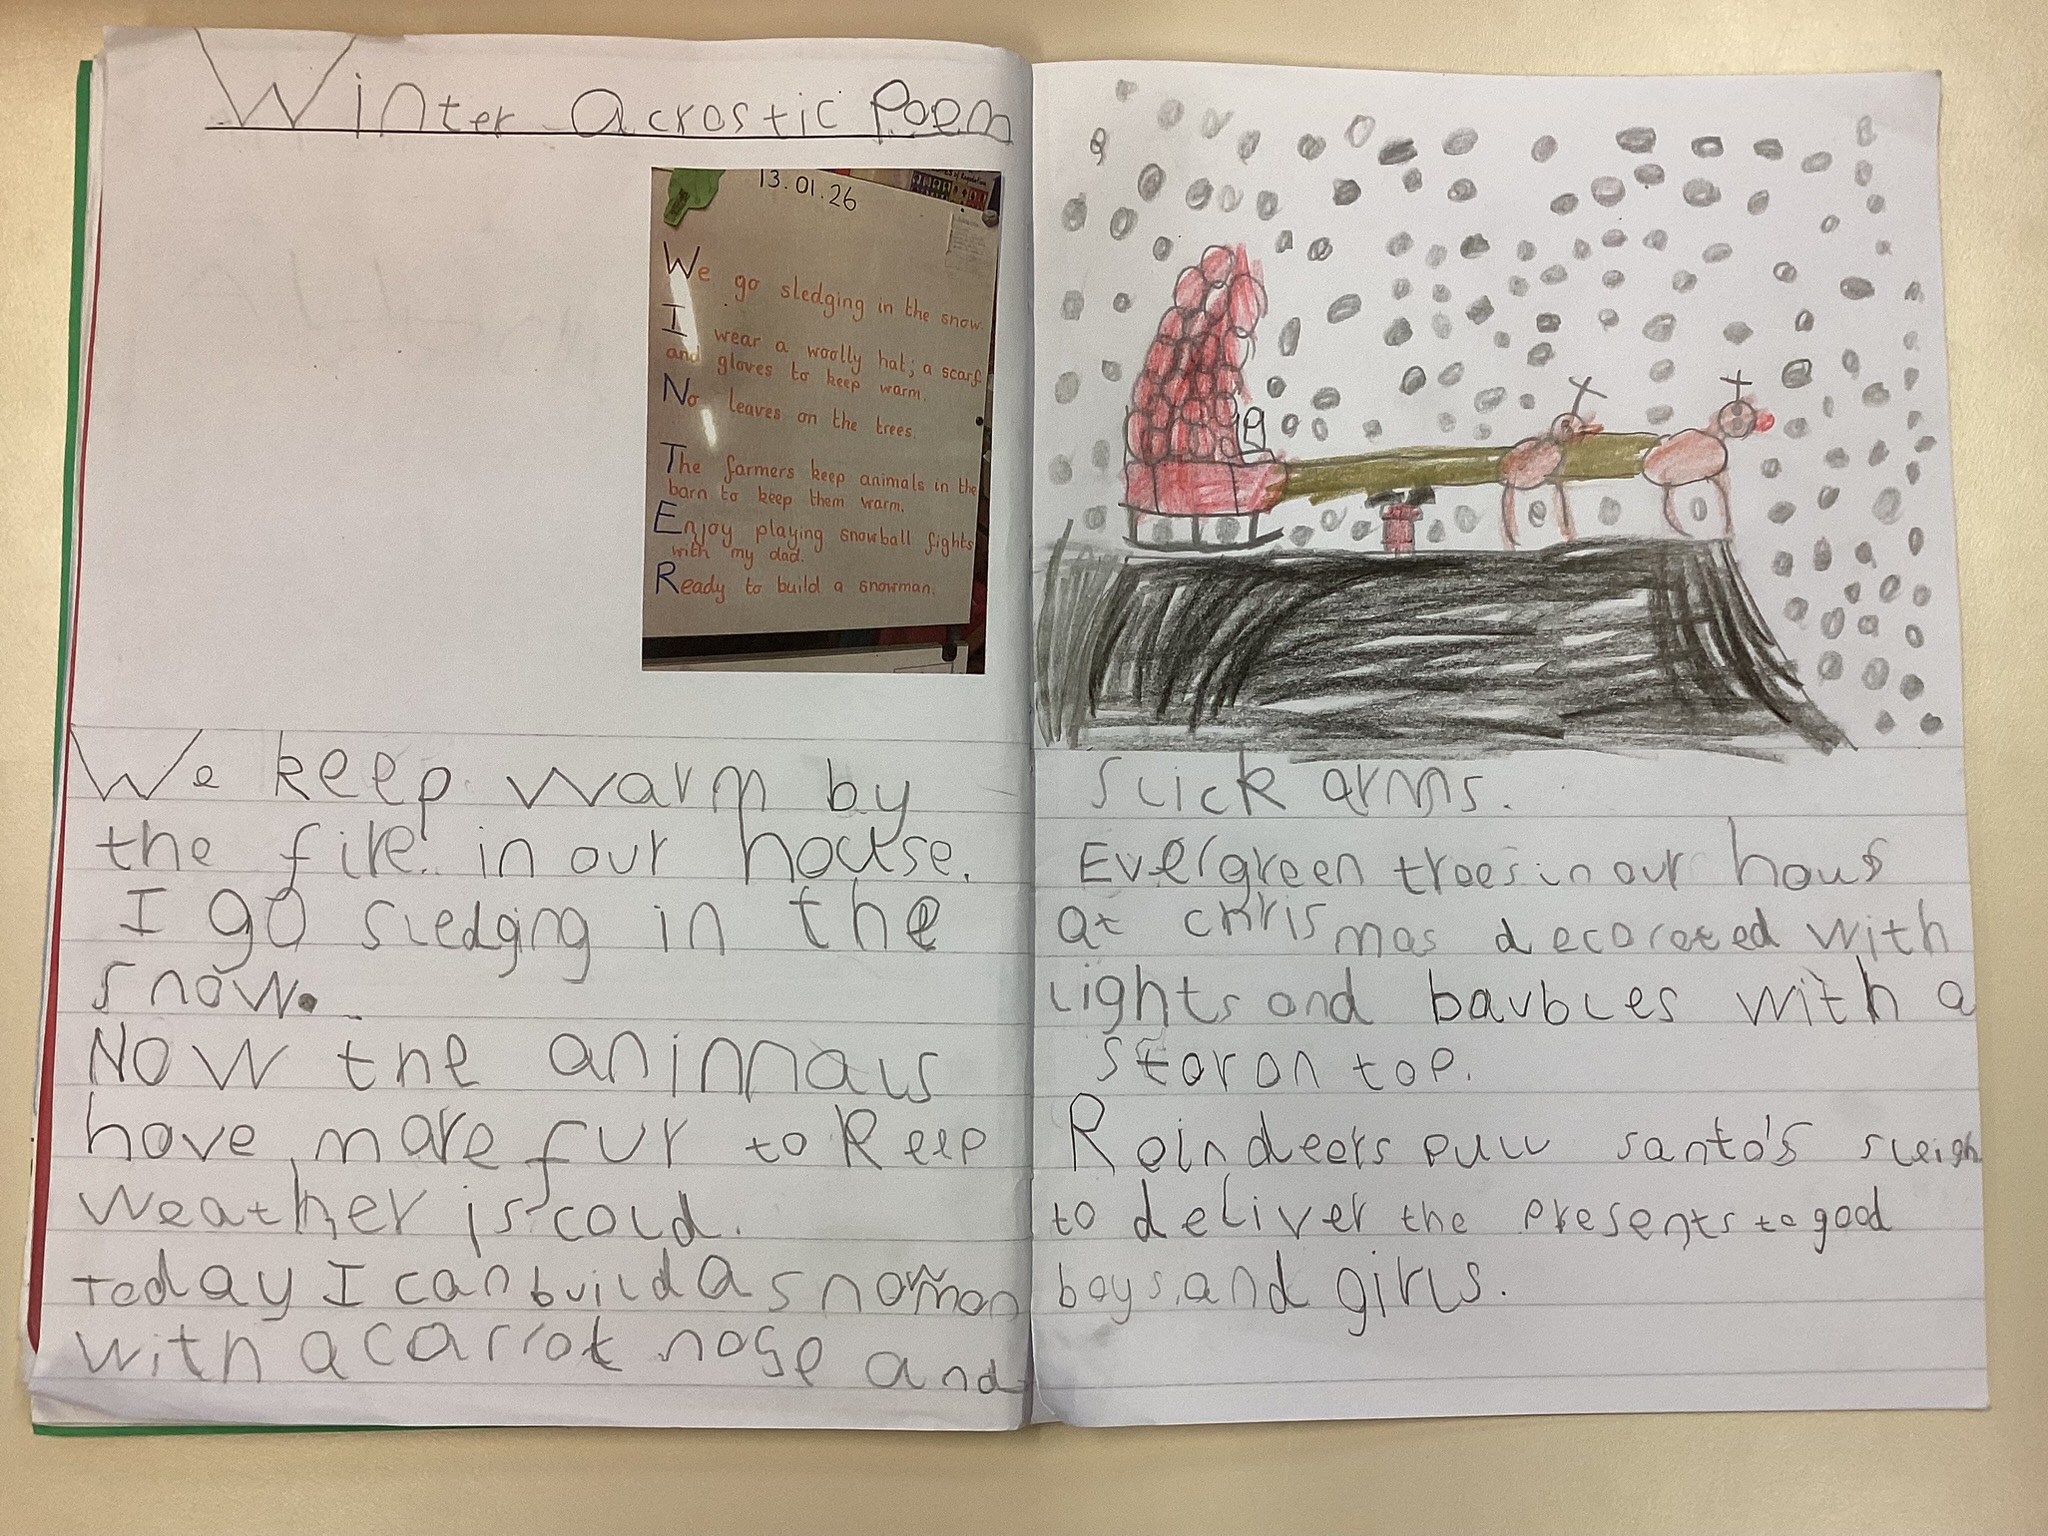 Winter acrostic Poem
13.01.26
We go sledging in the snow.
I wear a woolly hat; a scarf
and gloves to keep warm.
No leaves on the trees.
The farmers keep animals in the
barn to keep them warm.
Enjoy playing snowball fights
with my dad.
Ready to build a snowman.
We keep warm by
the fire in our house.
I go sledging in the
snow.
Now the animals
have more fur to keep
weather is cold.
today I can build a snowman
with a carrot nose and
stick arms.
Evergreen trees in our hous
at chrismas decorated with
lights and baubles with a
star on top.
Reindeers pull santa's sleigh
to deliver the presents to good
boys and girls.